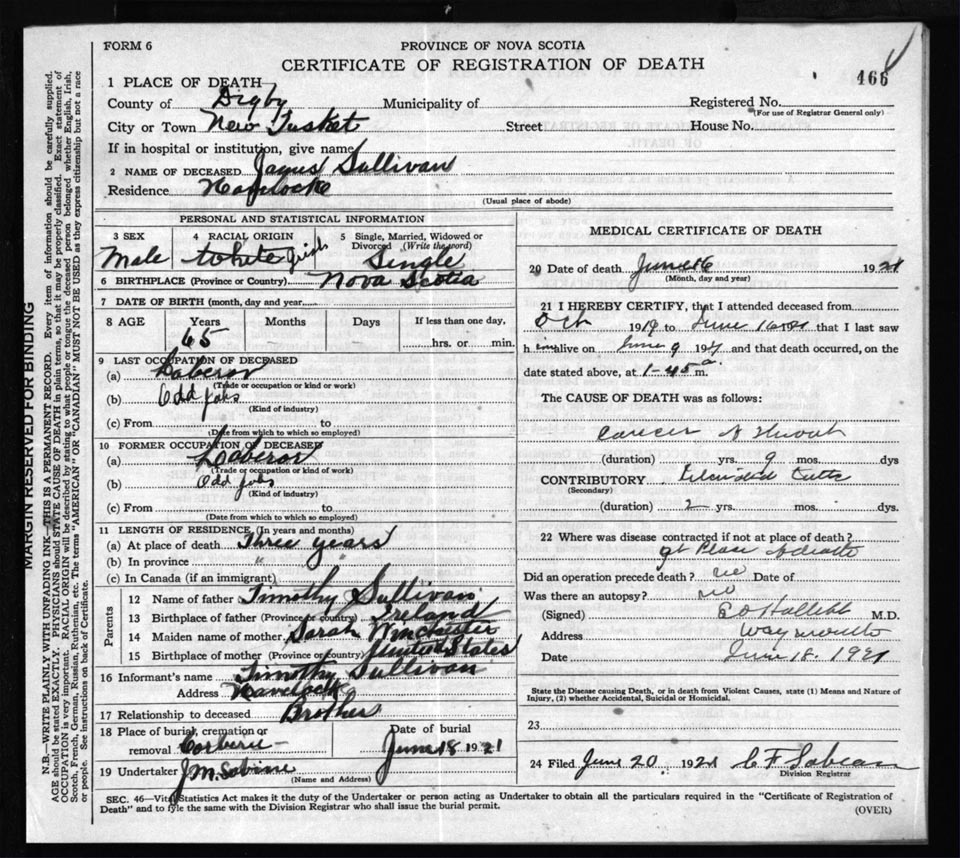 FORM 6
PROVINCE OF NOVA SCOTIA
CERTIFICATE OF REGISTRATION OF DEATH
466
1 PLACE OF DEATH
County of Digby Municipality of Registered No.
(For use of Registrar General only)
City or Town New Tusket Street House No.
If in hospital or institution, give name
2 NAME OF DECEASED James Sullivan
Residence Havelocke
(Usual place of abode)
PERSONAL AND STATISTICAL INFORMATION
3 SEX
Male
4 RACIAL ORIGIN
White Irish
5 Single, Married, Widowed or
Divorced (Write the word)
Single
6 BIRTHPLACE (Province or Country) Nova Scotia
7 DATE OF BIRTH (month, day and year)
8 AGE Years Months Days If less than one day,
65 hrs. or min.
9 LAST OCCUPATION OF DECEASED
(a) Laberor
(Trade or occupation or kind of work)
(b) Odd jobs
(Kind of industry)
(c) From to
(Date from which to which so employed)
10 FORMER OCCUPATION OF DECEASED
(a) Laberor
(Trade or occupation or kind of work)
(b) Odd jobs
(Kind of industry)
(c) From to
(Date from which to which so employed)
11 LENGTH OF RESIDENCE (In years and months)
(a) At place of death Three years
(b) In province " "
(c) In Canada (if an immigrant)
Parents
12 Name of father Timothy Sullivan
13 Birthplace of father (Province or country) Ireland
14 Maiden name of mother Sarah
15 Birthplace of mother (Province or country) United States
16 Informant's name Timothy Sullivan
Address Havelock
17 Relationship to deceased Brother
18 Place of burial, cremation or
removal Corberie
Date of burial
June 18 1921
19 Undertaker J.M. Sabine
(Name and Address)
MEDICAL CERTIFICATE OF DEATH
20 Date of death June 16 1921
(Month, day and year)
21 I HEREBY CERTIFY, that I attended deceased from
Oct 1919 to June 16 1921 that I last saw
him alive on June 9 1921 and that death occurred, on the
date stated above, at 1-45 a m.
The CAUSE OF DEATH was as follows:
Cancer of throat
(duration) yrs. 9 mos. dys
CONTRIBUTORY
(Secondary)
(duration) 2 yrs. mos. dys.
22 Where was disease contracted if not at place of death?
at Place of death
Did an operation precede death? no Date of
Was there an autopsy? no
(Signed) M.D.
Address Weymouth
Date June 18. 1921
State the Disease causing Death, or in death from Violent Causes, state (1) Means and Nature of
Injury, (2) whether Accidental, Suicidal or Homicidal.
23
24 Filed June 20 1921 C F Sabean
Division Registrar
SEC. 46—Vital Statistics Act makes it the duty of the Undertaker or person acting as Undertaker to obtain all the particulars required in the "Certificate of Registration of
Death" and to fyle the same with the Division Registrar who shall issue the burial permit.
(OVER)
MARGIN RESERVED FOR BINDING
N.B.—WRITE PLAINLY, WITH UNFADING INK—THIS IS A PERMANENT RECORD. Every item of information should be carefully supplied.
AGE should be stated EXACTLY. PHYSICIANS should STATE CAUSE OF DEATH in plain terms, so that it may be properly classified. Exact statement of
OCCUPATION is very important. RACIAL ORIGIN will be described by stating to what people or tongue the deceased person belonged whether English, Irish,
Scotch, French, German, Russian, Ruthenian, etc. The terms "AMERICAN" or "CANADIAN" MUST NOT BE USED as they express citizenship but not a race
or people. See instructions on back of Certificate.